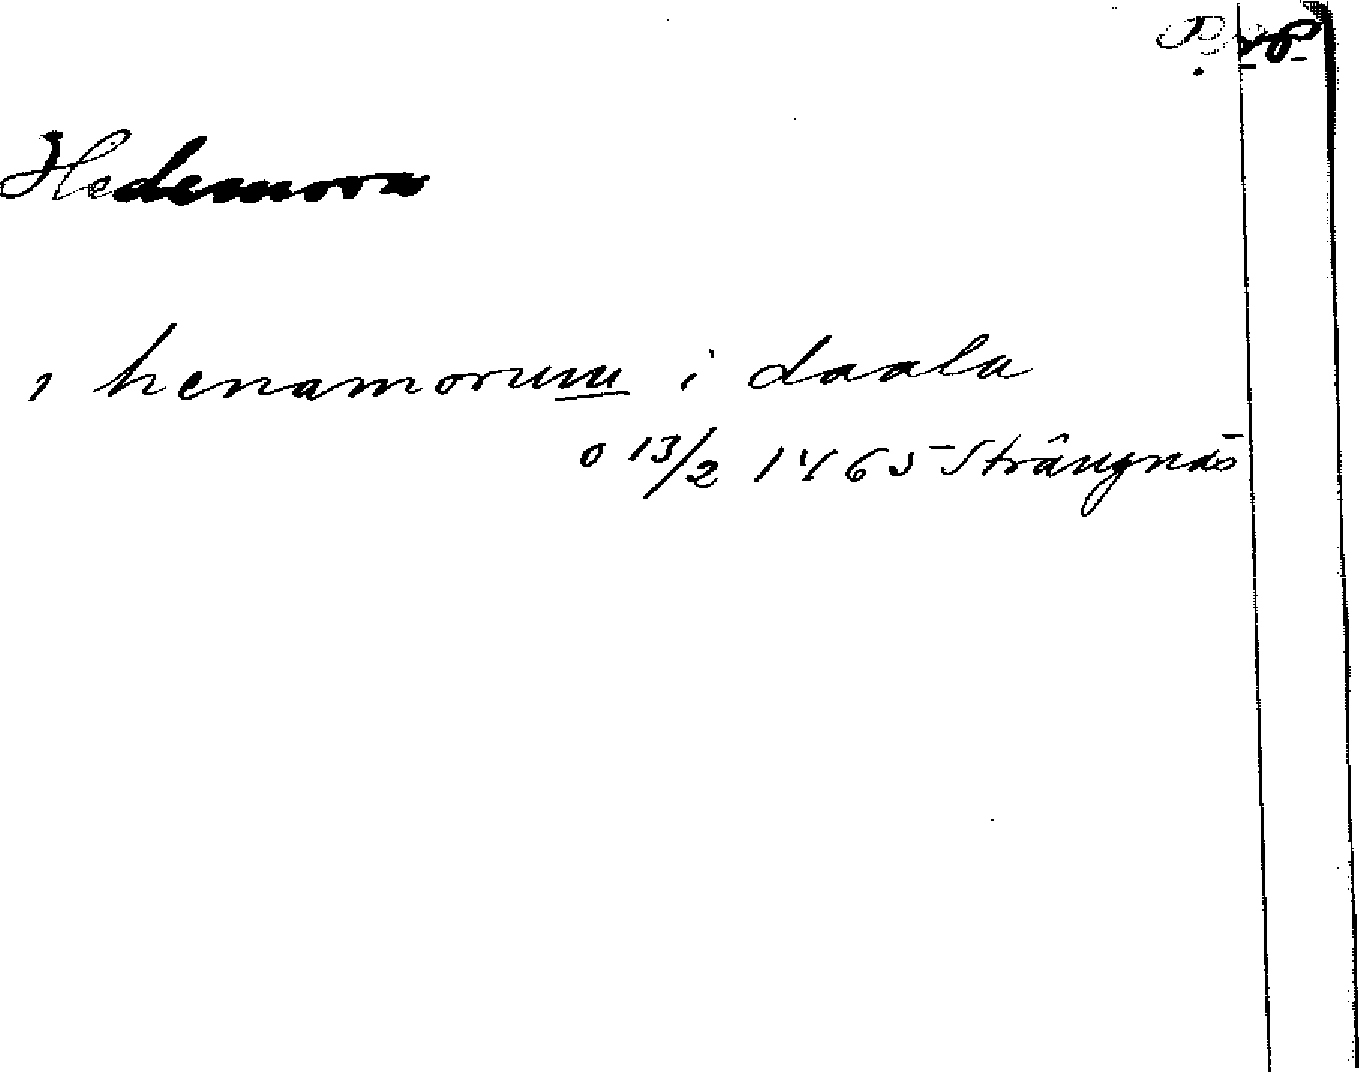 Hedemora
i henamorum i daala
o 13/2 1465 Strängnäs